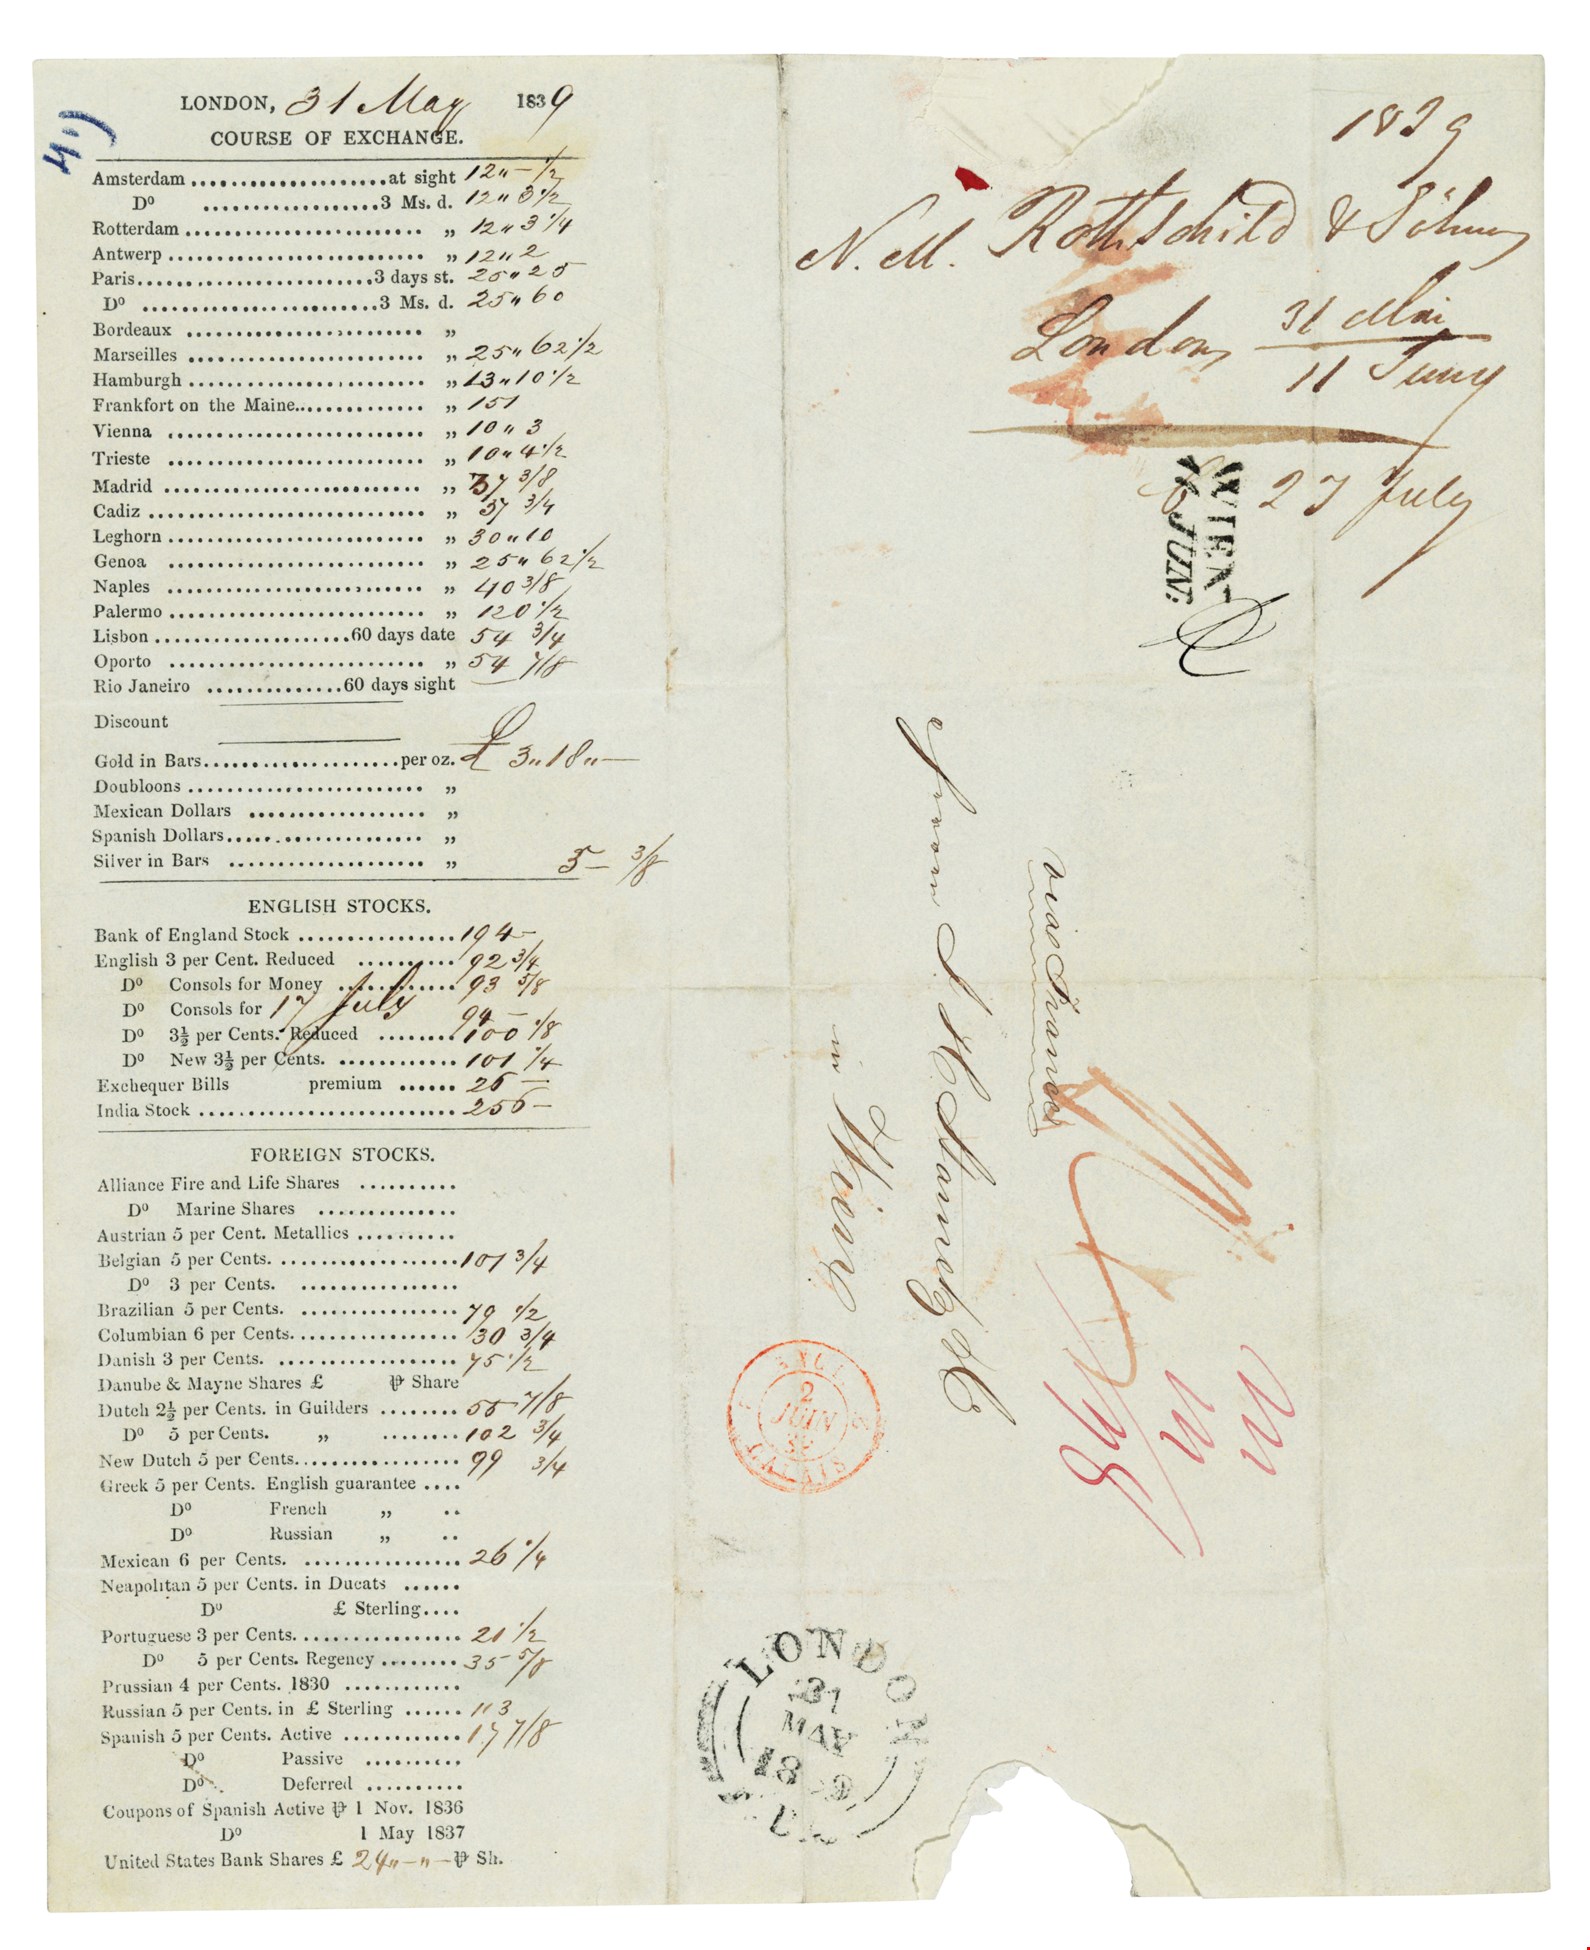 LONDON, 31 May 1839
COURSE OF EXCHANGE.
4")
Amsterdam ..................... at sight 12"–½
Dº .................. 3 Ms. d. 12"3½
Rotterdam ........................ „ 12"3¼
Antwerp .......................... „ 12"2
Paris ........................ 3 days st. 25"25
Dº ........................ 3 Ms. d. 25"60
Bordeaux ........................ „
Marseilles ........................ „ 25"62½
Hamburgh ........................ „ 13"10½
Frankfort on the Maine .............. „ 151
Vienna .......................... „ 10"3
Trieste .......................... „ 10"4½
Madrid .......................... „ 37 3/8
Cadiz ............................ „ 37 3/4
Leghorn .......................... „ 30"10
Genoa .......................... „ 25"62½
Naples .......................... „ 40 3/8
Palermo .......................... „ 120½
Lisbon .................... 60 days date 54 3/4
Oporto .......................... „ 54 7/8
Rio Janeiro .............. 60 days sight —
Discount
Gold in Bars .................... per oz. £ 3"18"—
Doubloons ........................ „
Mexican Dollars .................. „
Spanish Dollars .................... „
Silver in Bars .................... „ 5– 3/8
ENGLISH STOCKS.
Bank of England Stock ................ 194–
English 3 per Cent. Reduced .......... 92 3/4
Dº Consols for Money ............ 93 5/8
Dº Consols for 17 July 94 –
Dº 3½ per Cents. Reduced ........ 100 1/8
Dº New 3½ per Cents. ............ 101 1/4
Exchequer Bills premium ...... 26 —
India Stock .......................... 256–
FOREIGN STOCKS.
Alliance Fire and Life Shares ..........
Dº Marine Shares ..............
Austrian 5 per Cent. Metallics ..........
Belgian 5 per Cents. .................. 101 3/4
Dº 3 per Cents. ................
Brazilian 5 per Cents. ................ 79 1/2
Columbian 6 per Cents. ................ 30 3/4
Danish 3 per Cents. .................. 75 1/2
Danube & Mayne Shares £ ₱ Share
Dutch 2½ per Cents. in Guilders ........ 55 7/8
Dº 5 per Cents. „ ........ 102 3/4
New Dutch 5 per Cents. ................ 99 3/4
Greek 5 per Cents. English guarantee ....
Dº French „ ..
Dº Russian „ ..
Mexican 6 per Cents. ................ 26 1/4
Neapolitan 5 per Cents. in Ducats ......
Dº £ Sterling ....
Portuguese 3 per Cents. ................ 21 1/2
Dº 5 per Cents. Regency ........ 35 5/8
Prussian 4 per Cents. 1830 ............
Russian 5 per Cents. in £ Sterling ...... 113
Spanish 5 per Cents. Active ............ 17 7/8
Dº Passive ..........
Dº Deferred ..........
Coupons of Spanish Active ₱ 1 Nov. 1836
Dº 1 May 1837
United States Bank Shares £ 24"–"– ₱ Sh.
1839
N. M. Rothschild & Söhne
London 31 Mai
11 Juny
27 July
WIEN
JUN:
via France
Herren S. H.
in Wien
2
JUIN
39
CALAIS
LONDON
31
MAY
1839